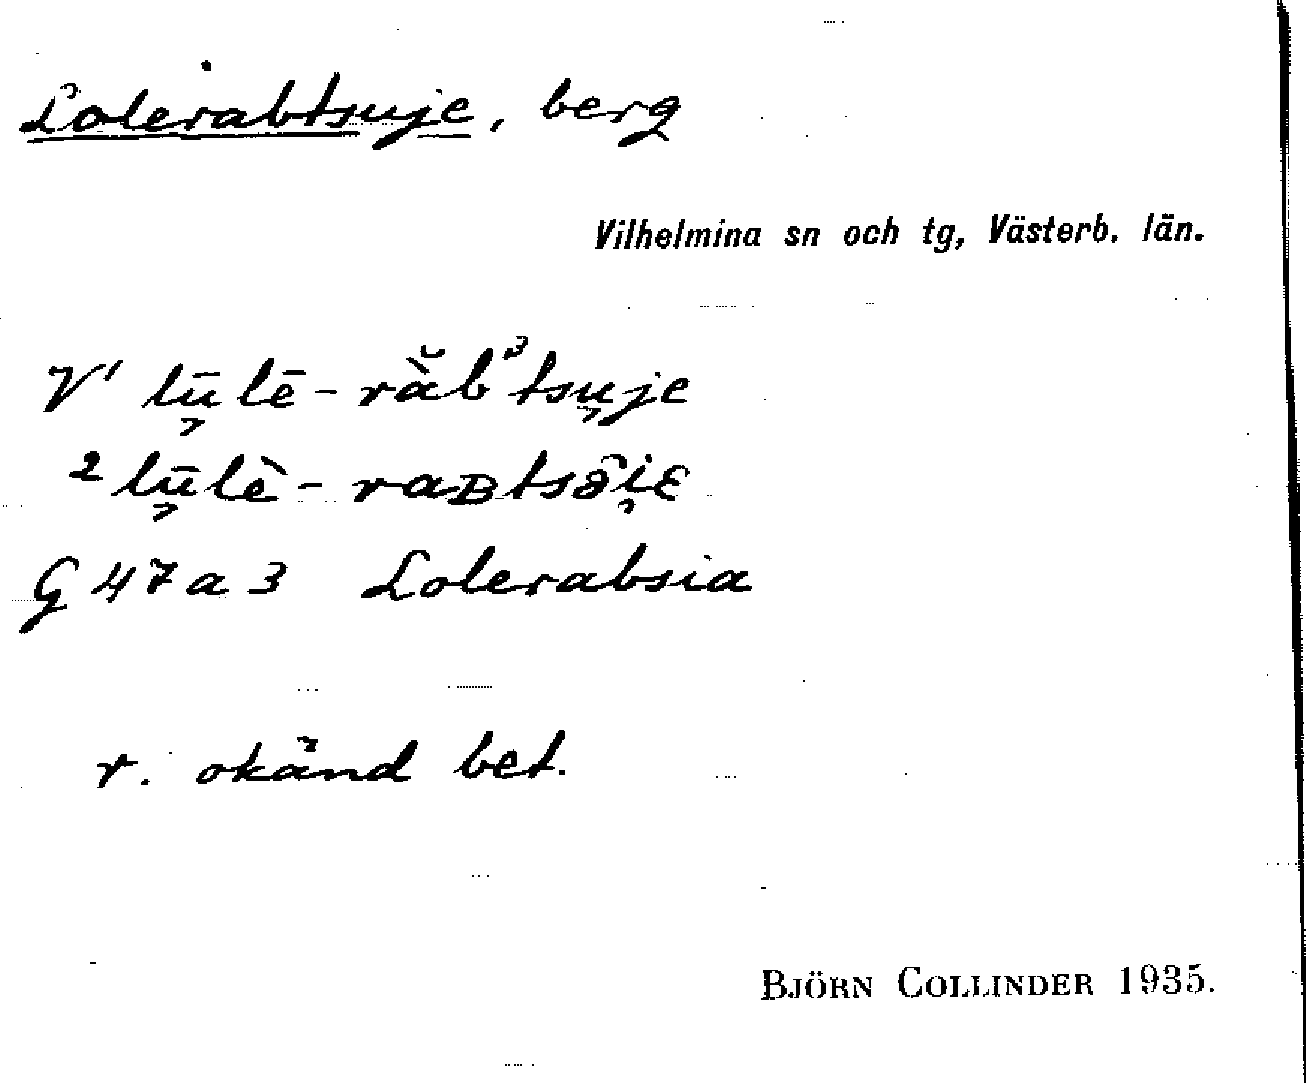 Lolerabtsuje, berg
Vilhelmina sn och tg, Västerb. län.
V¹ lū̜lē-rὰ̆bᵌtsu̜je
² lū̜lὲ-raʙtsə̑i̜ɛ
G 47 a 3 Lolerabsia
r. okänd bet.
BJÖRN COLLINDER 1935.